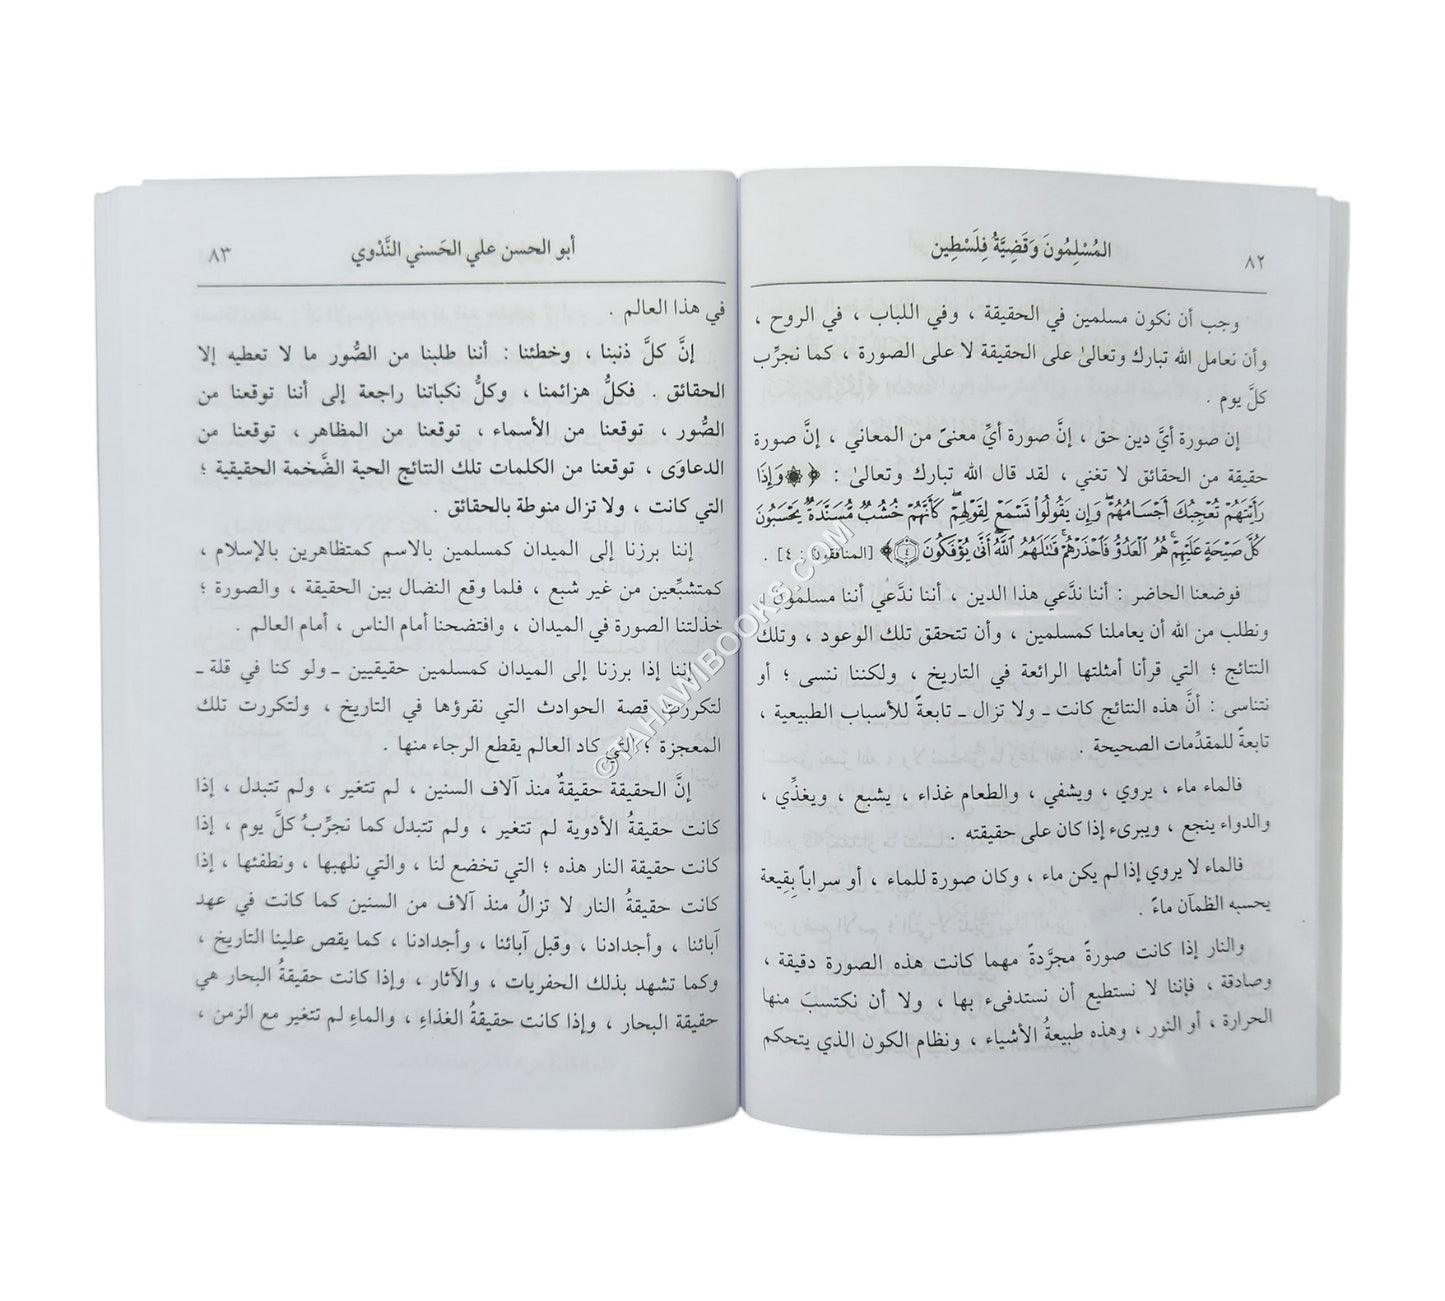 ٨٢ المُسْلِمُونَ وَقَضِيَّةُ فِلَسْطِين
وجب أن نكون مسلمين في الحقيقة ، وفي اللباب ، في الروح ،
وأن نعامل الله تبارك وتعالىٰ على الحقيقة لا على الصورة ، كما نجرِّب
كلَّ يوم .
إن صورة أيَّ دين حق ، إنَّ صورة أيِّ معنىً من المعاني ، إنَّ صورة
حقيقة من الحقائق لا تغني ، لقد قال الله تبارك وتعالىٰ : ﴿ ۞وَإِذَا
رَأَيْتَهُمْ تُعْجِبُكَ أَجْسَامُهُمْ وَإِن يَقُولُوا۟ تَسْمَعْ لِقَوْلِهِمْ كَأَنَّهُمْ خُشُبٌ مُّسَنَّدَةٌ يَحْسَبُونَ
كُلَّ صَيْحَةٍ عَلَيْهِمْ هُمُ الْعَدُوُّ فَاحْذَرْهُمْ قَاتَلَهُمُ اللَّهُ أَنَّىٰ يُؤْفَكُونَ ﴿٤﴾ ﴾ [المنافقون : ٤] .
فوضعنا الحاضر : أننا ندَّعي هذا الدين ، أننا ندَّعي أننا مسلمون ،
ونطلب من الله أن يعاملنا كمسلمين ، وأن تتحقق تلك الوعود ، وتلك
النتائج ؛ التي قرأنا أمثلتها الرائعة في التاريخ ، ولكننا ننسى ؛ أو
نتناسى : أنَّ هذه النتائج كانت ـ ولا تزال ـ تابعةً للأسباب الطبيعية ،
تابعةً للمقدِّمات الصحيحة .
فالماء ماء ، يروي ، ويشفي ، والطعام غذاء ، يشبع ، ويغذِّي ،
والدواء ينجع ، ويبرىء إذا كان على حقيقته .
فالماء لا يروي إذا لم يكن ماء ، وكان صورة للماء ، أو سراباً بِقِيعة
يحسبه الظمآن ماءً .
والنار إذا كانت صورةً مجرَّدةً مهما كانت هذه الصورة دقيقة ،
وصادقة ، فإننا لا نستطيع أن نستدفىء بها ، ولا أن نكتسبَ منها
الحرارة ، أو النور ، وهذه طبيعةُ الأشياء ، ونظام الكون الذي يتحكم
أبو الحسن علي الحَسني النَّدْوي ٨٣
في هذا العالم .
إنَّ كلَّ ذنبنا ، وخطئنا : أننا طلبنا من الصُّور ما لا تعطيه إلا
الحقائق . فكلُّ هزائمنا ، وكلُّ نكباتنا راجعة إلى أننا توقعنا من
الصُّور ، توقعنا من الأسماء ، توقعنا من المظاهر ، توقعنا من
الدعاوَى ، توقعنا من الكلمات تلك النتائج الحية الضَّخمة الحقيقية ؛
التي كانت ، ولا تزال منوطة بالحقائق .
إننا برزنا إلى الميدان كمسلمين بالاسم كمتظاهرين بالإسلام ،
كمتشبِّعين من غير شبع ، فلما وقع النضال بين الحقيقة ، والصورة ؛
خذلتنا الصورة في الميدان ، وافتضحنا أمام الناس ، أمام العالم .
إننا إذا برزنا إلى الميدان كمسلمين حقيقيين ـ ولو كنا في قلة ـ
لتكررت قصة الحوادث التي نقرؤها في التاريخ ، ولتكررت تلك
المعجزة ؛ التي كاد العالم يقطع الرجاء منها .
إنَّ الحقيقة حقيقةٌ منذ آلاف السنين ، لم تتغير ، ولم تتبدل ، إذا
كانت حقيقةُ الأدوية لم تتغير ، ولم تتبدل كما نجرِّبُ كلَّ يوم ، إذا
كانت حقيقة النار هذه ؛ التي تخضع لنا ، والتي نلهبها ، ونطفئها ، إذا
كانت حقيقةُ النار لا تزالُ منذ آلاف من السنين كما كانت في عهد
آبائنا ، وأجدادنا ، وقبل آبائنا ، وأجدادنا ، كما يقص علينا التاريخ ،
وكما تشهد بذلك الحفريات ، والآثار ، وإذا كانت حقيقةُ البحار هي
حقيقة البحار ، وإذا كانت حقيقةُ الغذاءِ ، والماءِ لم تتغير مع الزمن ،
©TAHAWIBOOKS.COM